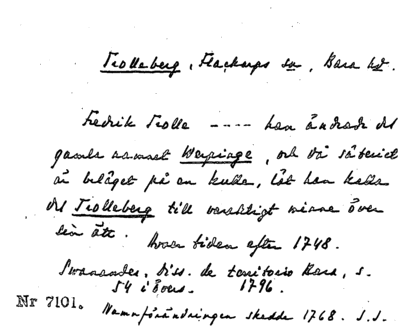 Trolleberg, Flackarps sn, Bara hd.
Fredrik Trolle ---- han ändrade det
gamla namnet Werpinge, och då säteriet
är beläget på en kulle, lät han kalla
det Trolleberg till varaktigt minne över
sin ätt.
Hvar tiden efter 1748.
Swanander, Diss. de territorio Bara, s.
54 i övers. 1796.
Nr 7101. Namnförändringen skedde 1768. S.S.